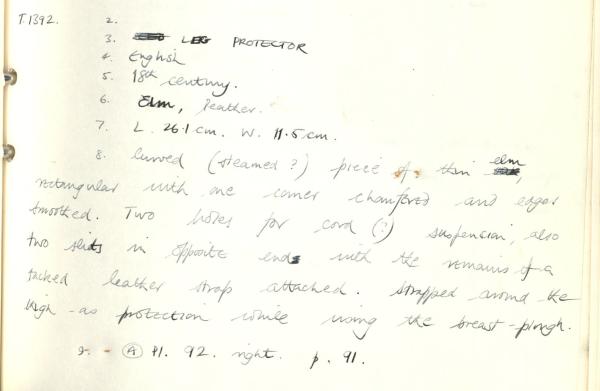 T.1392. 2.
3. LEG PROTECTOR
4. English
5. 18th century.
6. Elm, leather.
7. L. 26.1 cm. W. 11.5 cm.
8. Curved (steamed?) piece of thin elm,
rectangular with one corner chamfered and edges
smoothed. Two holes for cord (?) suspension, also
two slits in opposite ends with the remains of a
tacked leather strap attached. Strapped around the
thigh as protection while using the breast-plough.
9. (A) Pl. 92. right. p. 91.